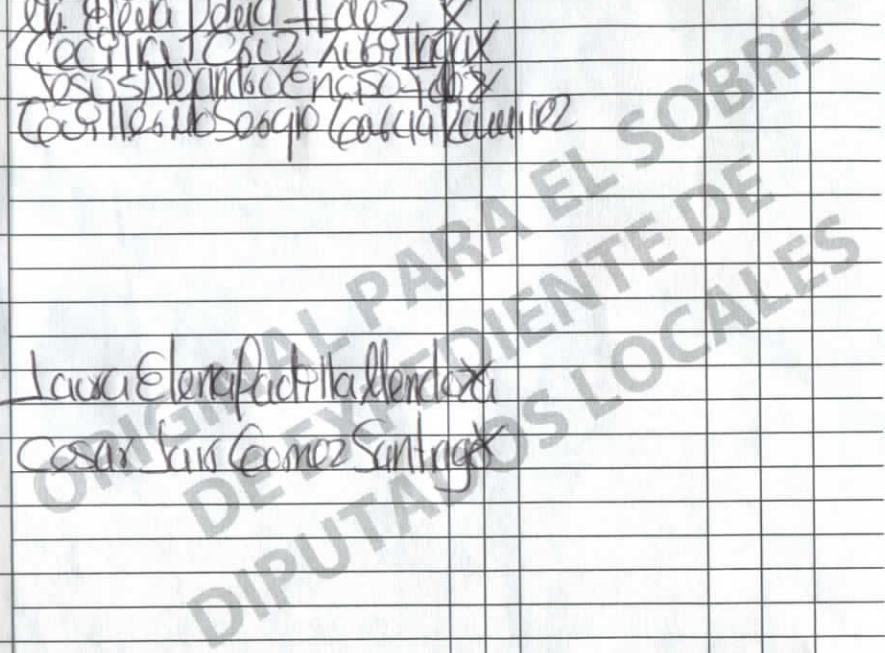 Ma Elena Peña Hdez X
Cecilia Cruz X
Jesus Alejandro Enciso Hdez X
Sergio Garcia Ramirez
Laura Elena Padilla Mendoza
Cesar Luis Gomez Santiago X
ORIGINAL PARA EL SOBRE
DE EXPEDIENTE DE
DIPUTADOS LOCALES